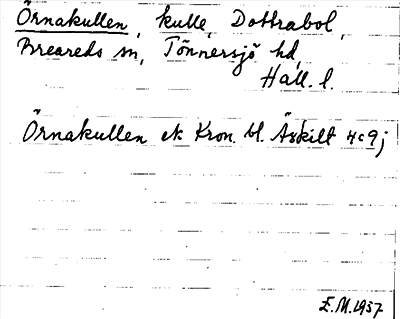 Örnakullen, kulle, Dottrabol,
Breareds sn, Tönnersjö hd,
Hall. l.
Örnakullen ek Kron. bl. Äskilt 4c9j
E.M. 1957